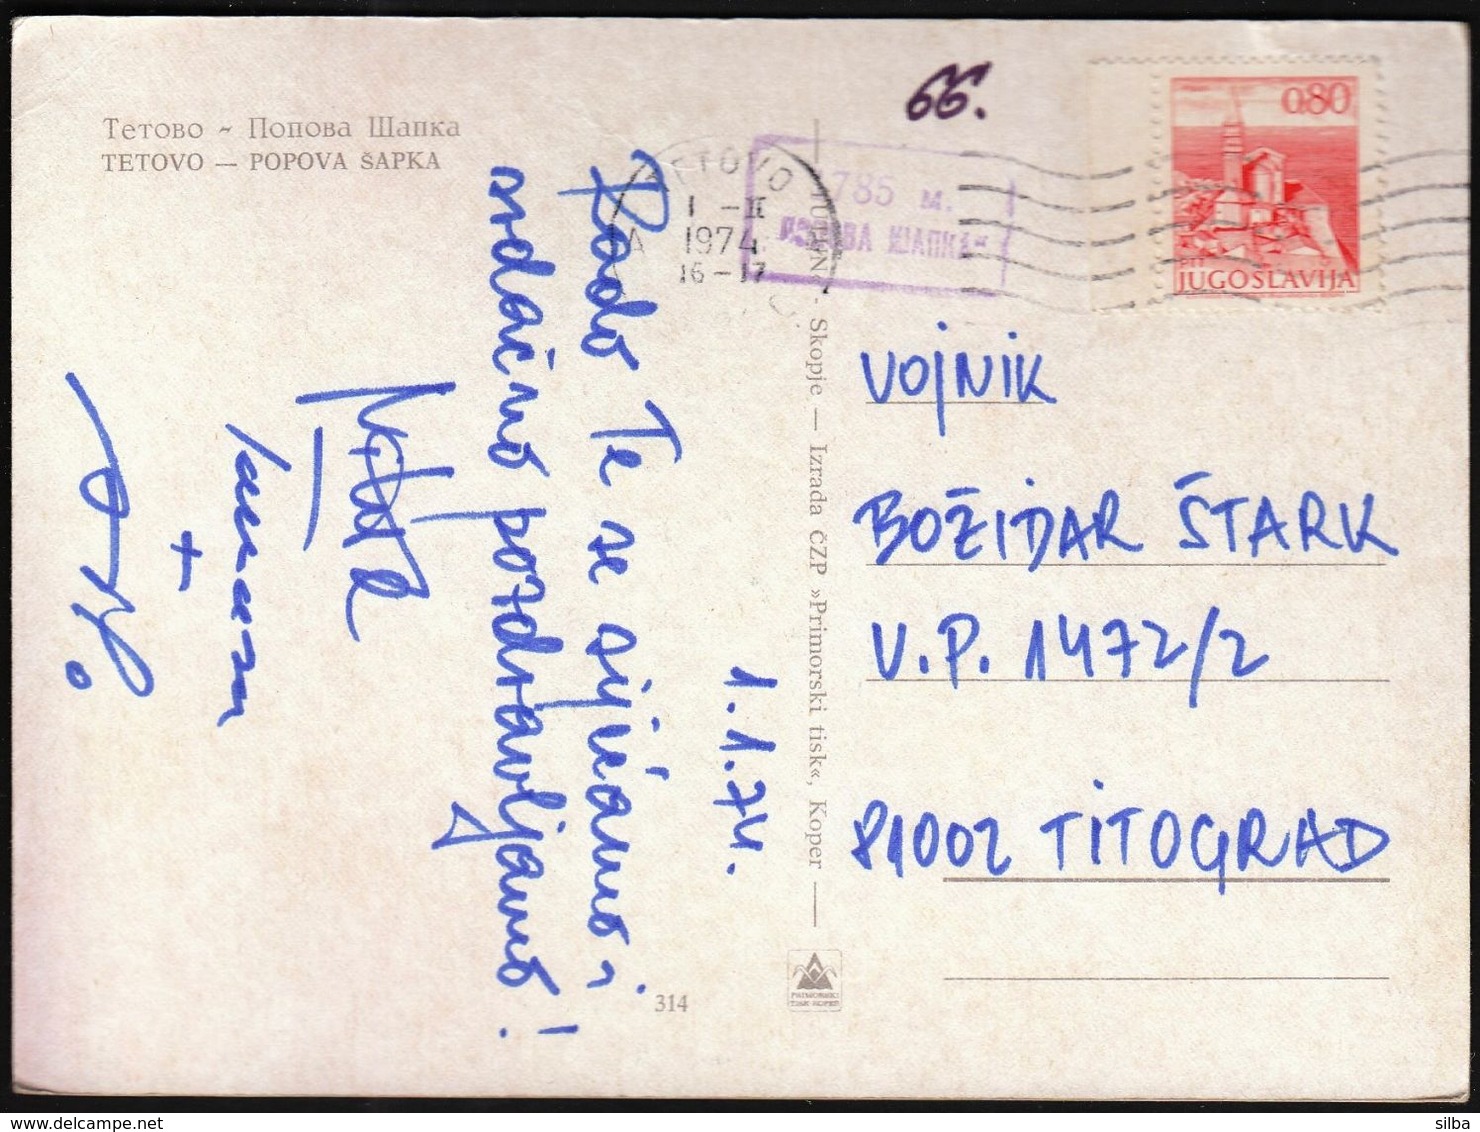 Тетово ~ Попова Шапка
TETOVO — POPOVA ŠAPKA
66.
TETOVO
1 -II
1974
16-17
785 м.
ПОПОВА ШАПКА
0.80
PTT
JUGOSLAVIJA
1.1.74.
Rado Te se sjećamo i
srdačno pozdravljamo!
+
Skopje — Izrada ČZP »Primorski tisk«, Koper
VOJNIK
BOŽIDAR ŠTARK
V.P. 1472/2
81002 TITOGRAD
314
PRIMORSKI
TISK KOPER
silba